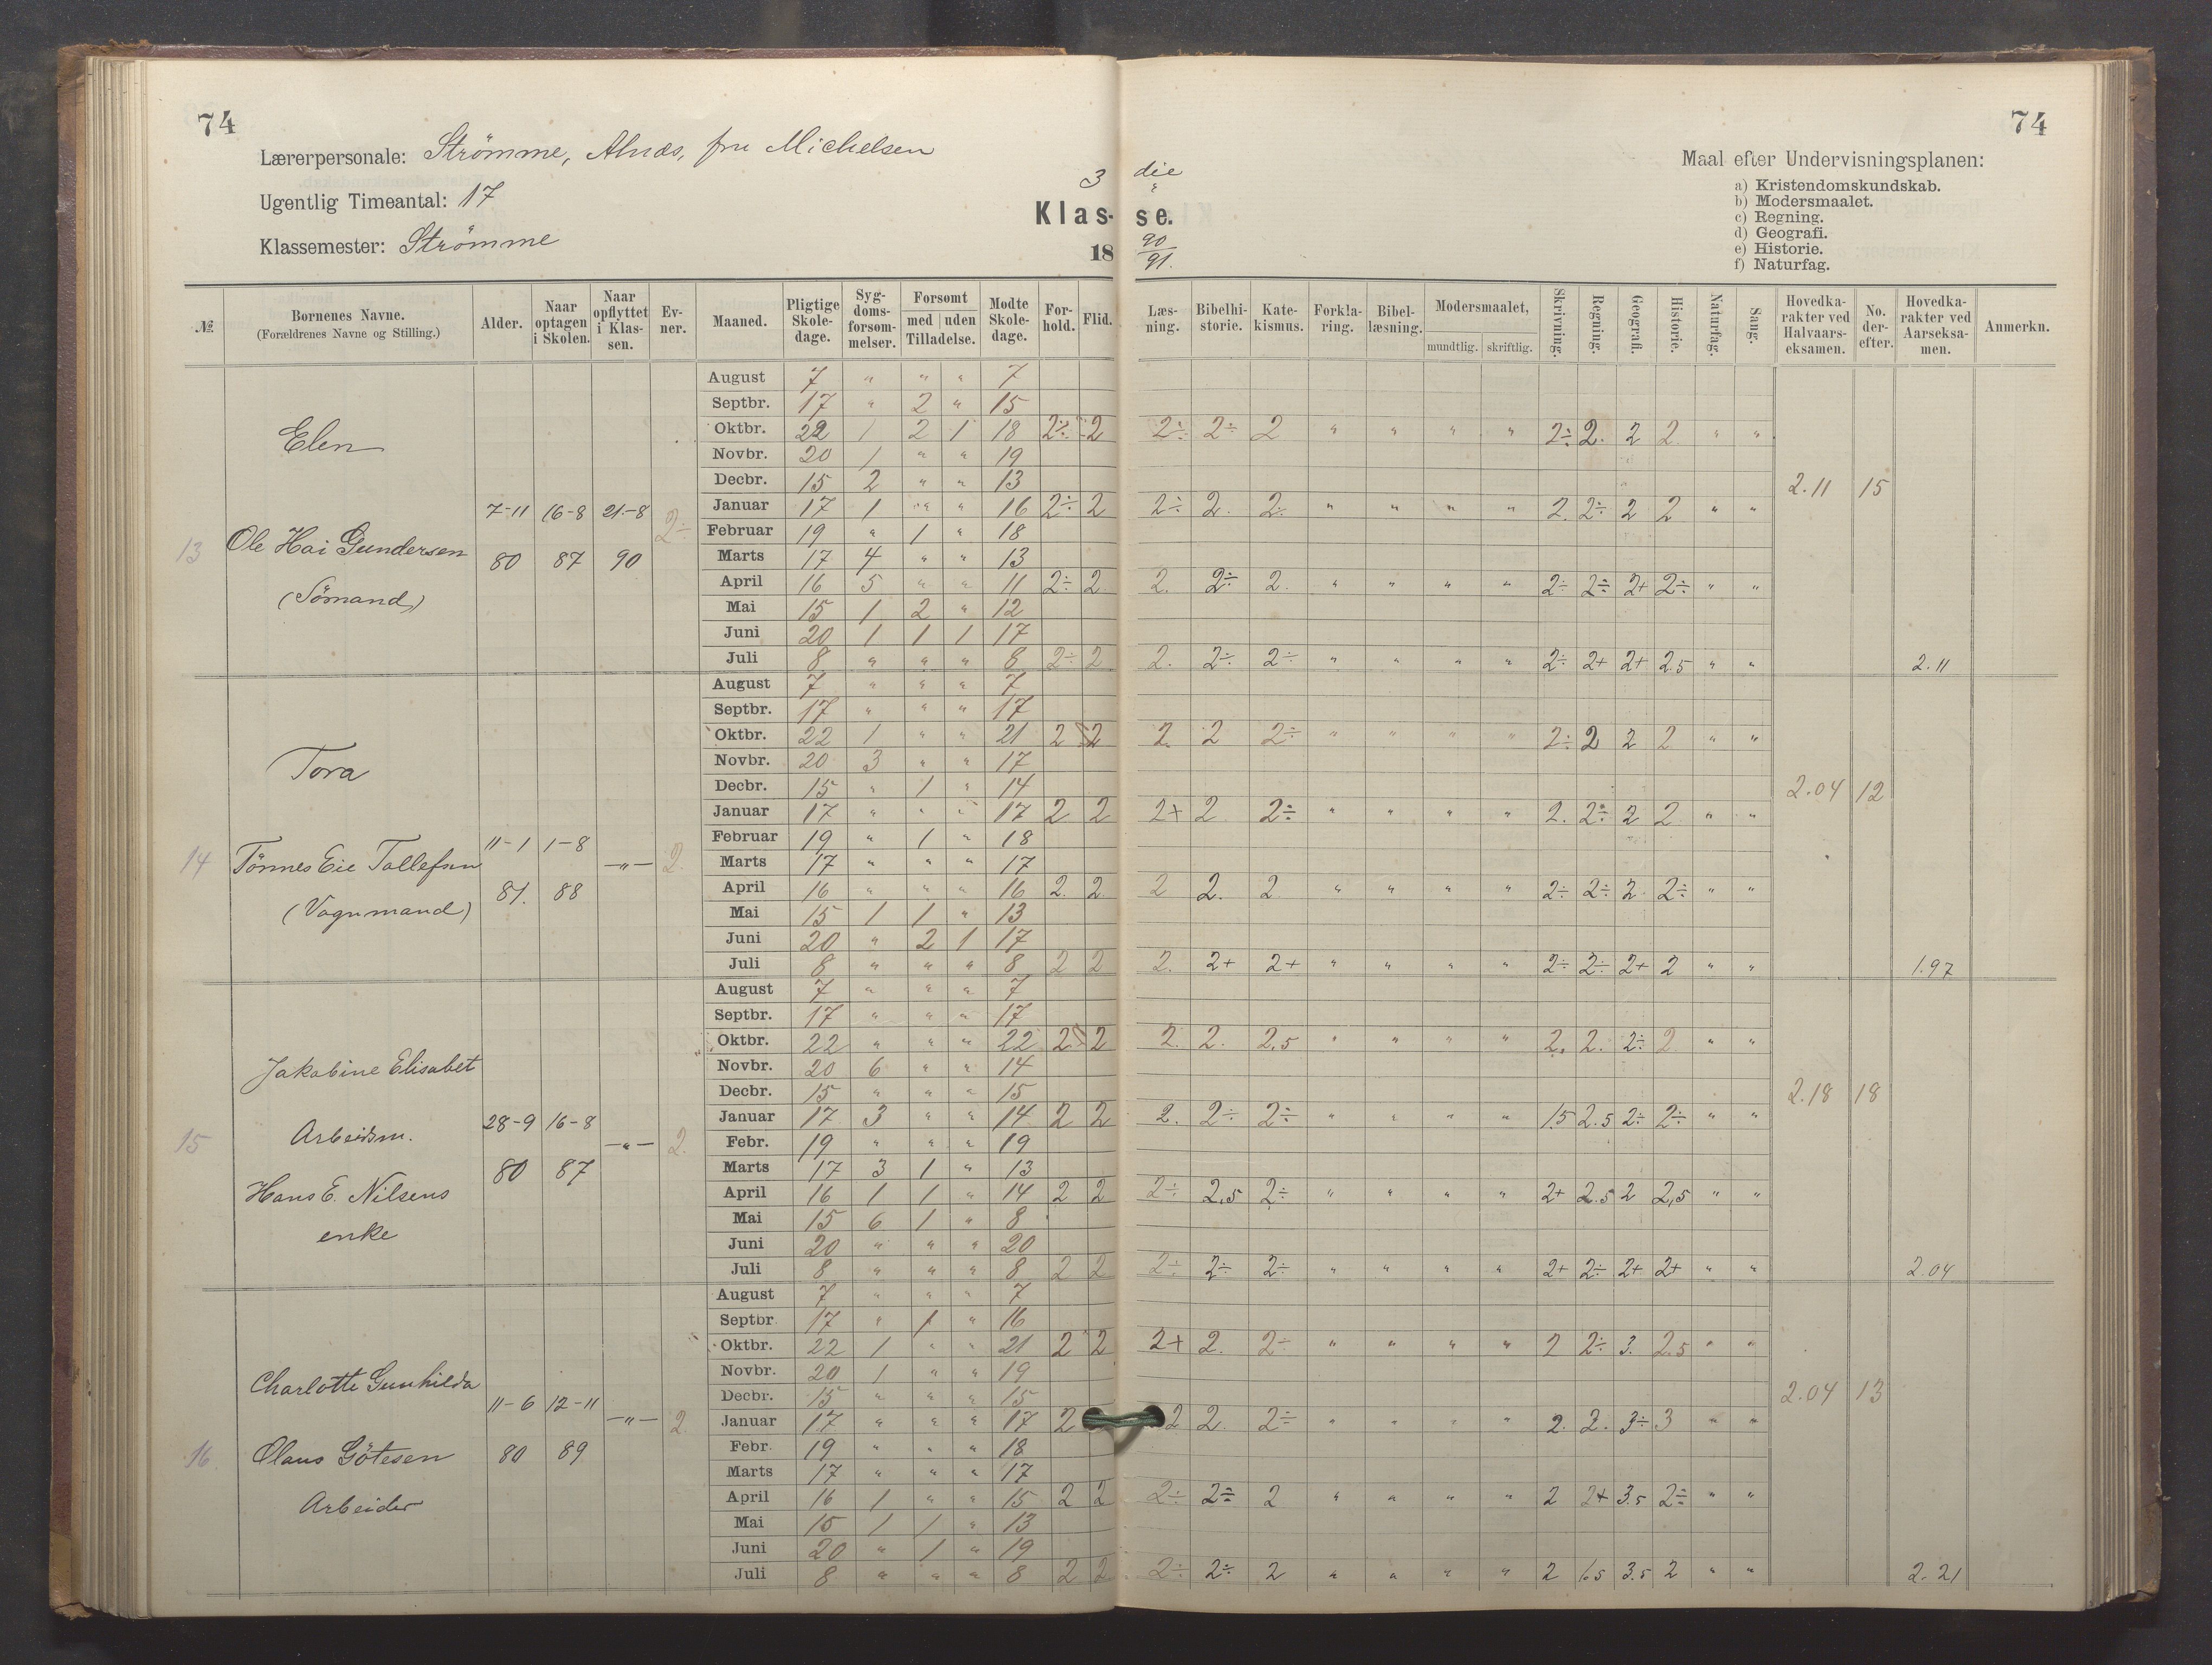 74
74
Lærerpersonale: Strömme, Alnæs, fru Michelsen
Ugentlig Timeantal: 17
Klassemester: Strömme
3 die
Klas- se.
18 90/91.
Maal efter Undervisningsplanen:
a) Kristendomskundskab.
b) Modersmaalet.
c) Regning.
d) Geografi.
e) Historie.
f) Naturfag.
№ | Bornenes Navne. (Forældrenes Navne og Stilling.) | Alder. | Naar optagen i Skolen. | Naar opflyttet i Klassen. | Evner. | Maaned. | Pligtige Skoledage. | Sygdomsforsommelser. | Forsomt med uden Tilladelse. | Modte Skoledage. | Forhold. | Flid. | Læsning. | Bibelhistorie. | Katekismus. | Forklaring. | Bibellæsning. | Modersmaalet, mundtlig. skriftlig. | Skrivning. | Regning. | Geografi. | Historie. | Naturfag. | Sang. | Hovedkarakter ved Halvaarseksamen. | No. derefter. | Hovedkarakter ved Aarseksamen. | Anmerkn.
13 Elen
Ole Hai Gundersen
(Sömand)
7-11 80 | 16-8 87 | 21-8 90 | 2÷
August 7 " " " 7
Septbr. 17 " 2 " 15
Oktbr. 22 1 2 1 18 2÷ 2 2÷ 2÷ 2 " " " " 2÷ 2. 2 2. " "
Novbr. 20 1 " " 19
Decbr. 15 2 " " 13
2.11 15
Januar 17 1 " " 16 2÷ 2 2÷ 2. 2. " " " " 2. 2÷ 2 2 " "
Februar 19 " 1 " 18
Marts 17 4 " " 13
April 16 5 " " 11 2÷ 2 2. 2÷ 2. " " " " 2÷ 2÷ 2+ 2÷ " "
Mai 15 1 2 " 12
Juni 20 1 1 1 17
Juli 8 " " " 8 2÷ 2 2. 2÷ 2÷ " " " " 2÷ 2+ 2+ 2.5 " " 2.11
14 Tora
Tönnes Eie Tallefsen
(Vognmand)
11-1 81. | 1-8 88 | —"— | 2.
August 7 " " " 7
Septbr. 17 " " " 17
Oktbr. 22 1 " " 21 2 2 2. 2 2÷ " " " " 2÷ 2 2 2 " "
Novbr. 20 3 " " 17
Decbr. 15 " 1 " 14
2.04 12
Januar 17 " " " 17 2 2 2+ 2 2÷ " " " " 2. 2÷ 2 2 " "
Februar 19 " 1 " 18
Marts 17 " " " 17
April 16 " " " 16 2. 2 2 2. 2 " " " " 2÷ 2÷ 2. 2÷ " "
Mai 15 1 1 " 13
Juni 20 " 2 1 17
Juli 8 " " " 8 2 2 2. 2+ 2+ " " " " 2÷ 2÷ 2+ 2 " " 1.97
15 Jakobine Elisabet
Arbeidsm.
Hans E. Nilsens
enke
28-9 80 | 16-8 87 | —"— | 2.
August 7 " " " 7
Septbr. 17 " " " 17
Oktbr. 22 " " " 22 2 2 2. 2. 2,5 " " " " 2. 2. 2÷ 2 " "
Novbr. 20 6 " " 14
Decbr. 15 " " " 15
2.18 18
Januar 17 3 " " 14 2 2 2. 2÷ 2÷ " " " " 1.5 2.5 2÷ 2÷ " "
Febr. 19 " " " 19
Marts 17 3 1 " 13
April 16 1 1 " 14 2 2 2÷ 2,5 2÷ " " " " 2+ 2.5 2 2,5 " "
Mai 15 6 1 " 8
Juni 20 " " " 20
Juli 8 " " " 8 2 2 2÷ 2÷ 2÷ " " " " 2+ 2÷ 2+ 2+ " " 2.04
16 Charlotte Gunhilda
Olaus Götesen
Arbeider
11-6 80 | 12-11 89 | —"— | 2
August 7 " " " 7
Septbr 17 " 1 " 16
Oktbr. 22 1 " " 21 2 2 2+ 2. 2÷ " " " " 2 2÷ 3. 2.5 " "
Novbr. 20 1 " " 19
Decbr. 15 " " " 15
2.04 13
Januar 17 " " " 17 2 2 2. 2÷ " " " " 2. 2. 3÷ 3 " "
Febr. 19 " " " 18
Marts 17 " " " 17
April 16 1 " " 15 2 2 2÷ 2÷ 2 " " " " 2 2+ 3.5 2÷ " "
Mai 15 1 1 " 13
Juni 20 " 1 " 19
Juli 8 " " " 8 2 2 2÷ 2÷ 2 " " " " 2 1.5 3.5 2 " " 2.21